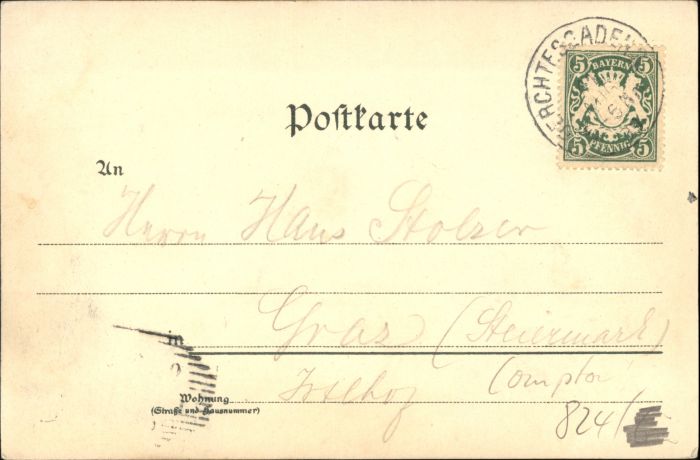 BERCHTESGADEN
5 BAYERN 5
5 PFENNIG 5
Postkarte
An
Herrn Hans Stolzer
Graz (Steiermark)
in
Comptoir
Wohnung
(Straße und Hausnummer)
824/